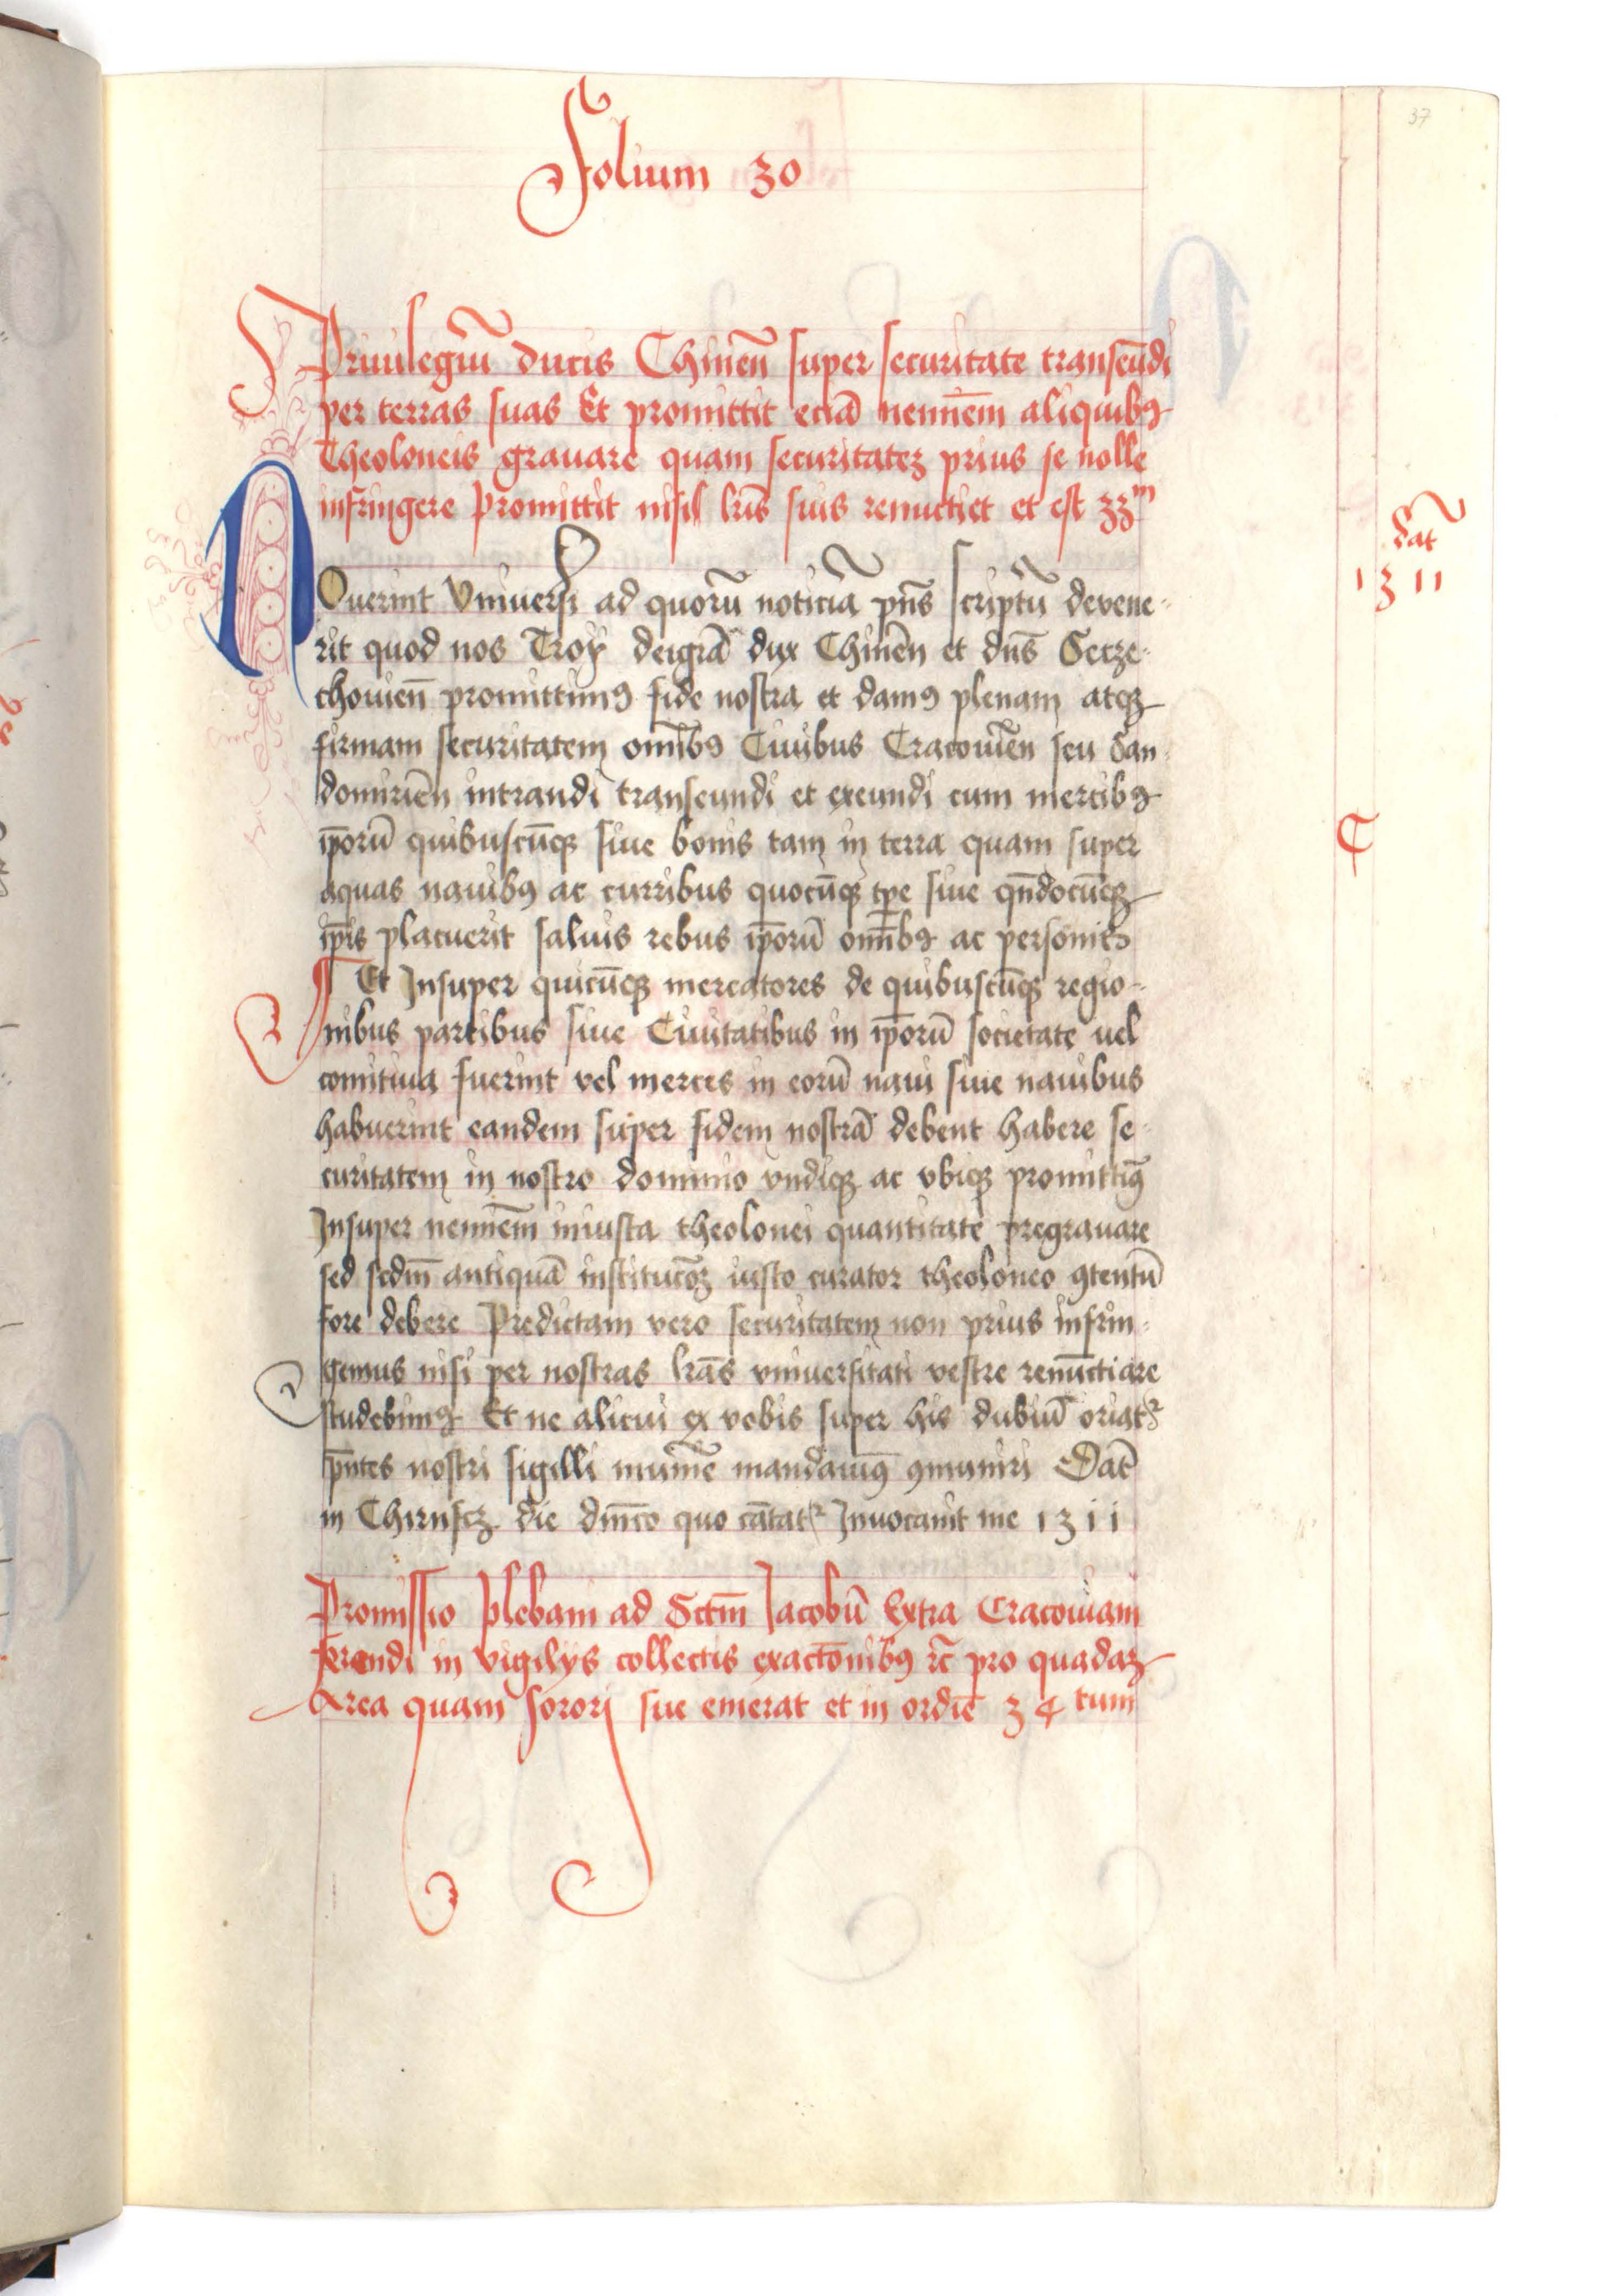 Folium 30
37
Priuilegiū ducis Chmēn super securitate transeūdi
per terras suas Et promittit eciā neminēm aliquibꝯ
Theoloneis grauare quam securitateꝫ prius se nolle
infringere promittit nisi lrīs suis renuctiet et est 33m
dat
1311
Nouerint Vniuersi ad quorū noticiā pn̄s scriptū devene-
rit quod nos Troy deigrā dux Chmēn et dn̄s Secze-
chouien̄ promittimꝯ fide nostra et damꝯ plenam atqꝫ
firmam securitatem om̄ibꝯ Ciuibus Cracouiēn seu San-
domiriēn intrandi transeundi et exeundi cum mercibꝯ
ip̄orū quibuscūqꝫ siue bonis tam in terra quam super
aquas nauibꝯ ac curribus quocūqꝫ tp̄e siue qn̄docūqꝫ
ip̄is placuerit saluis rebus ip̄orū om̄ibꝯ ac personis
¶ Et Insuper quicūqꝫ mercatores de quibuscūqꝫ regio-
nibus partibus siue Ciuitatibus in ip̄orū societate uel
comitiua fuerint vel merces in eorū naui siue nauibus
habuerint eandem super fidem nostrā debent habere se-
curitatem in nostro dominio vndiqꝫ ac vbiqꝫ promittiꝯ
Insuper neminēm iniusta theolonei quantitate pregrauare
sed scdm̄ antiquā institucōꝫ iusto curator theoloneo ꝯtentū
fore debere Predictam vero securitatem non prius infrin-
gemus nisi per nostras lrās vniuersitati vestre renūctiare
studebimꝯ Et ne alicui ex vobis super his dubiū oriatꝛ
pn̄tes nostri sigilli munīe mandauimꝯ ꝯmuniri Dat̄
in Chirnscz die dnīco quo cātatꝛ Inuocauit me 1311
Promissio plebani ad Sctm̄ Jacobū Extra Cracouiam
ferendi in vigilijs collectis exactōnibꝯ rc̄ pro quadaꝫ
Area quam sorori sue emerat et in ordīe 34tum